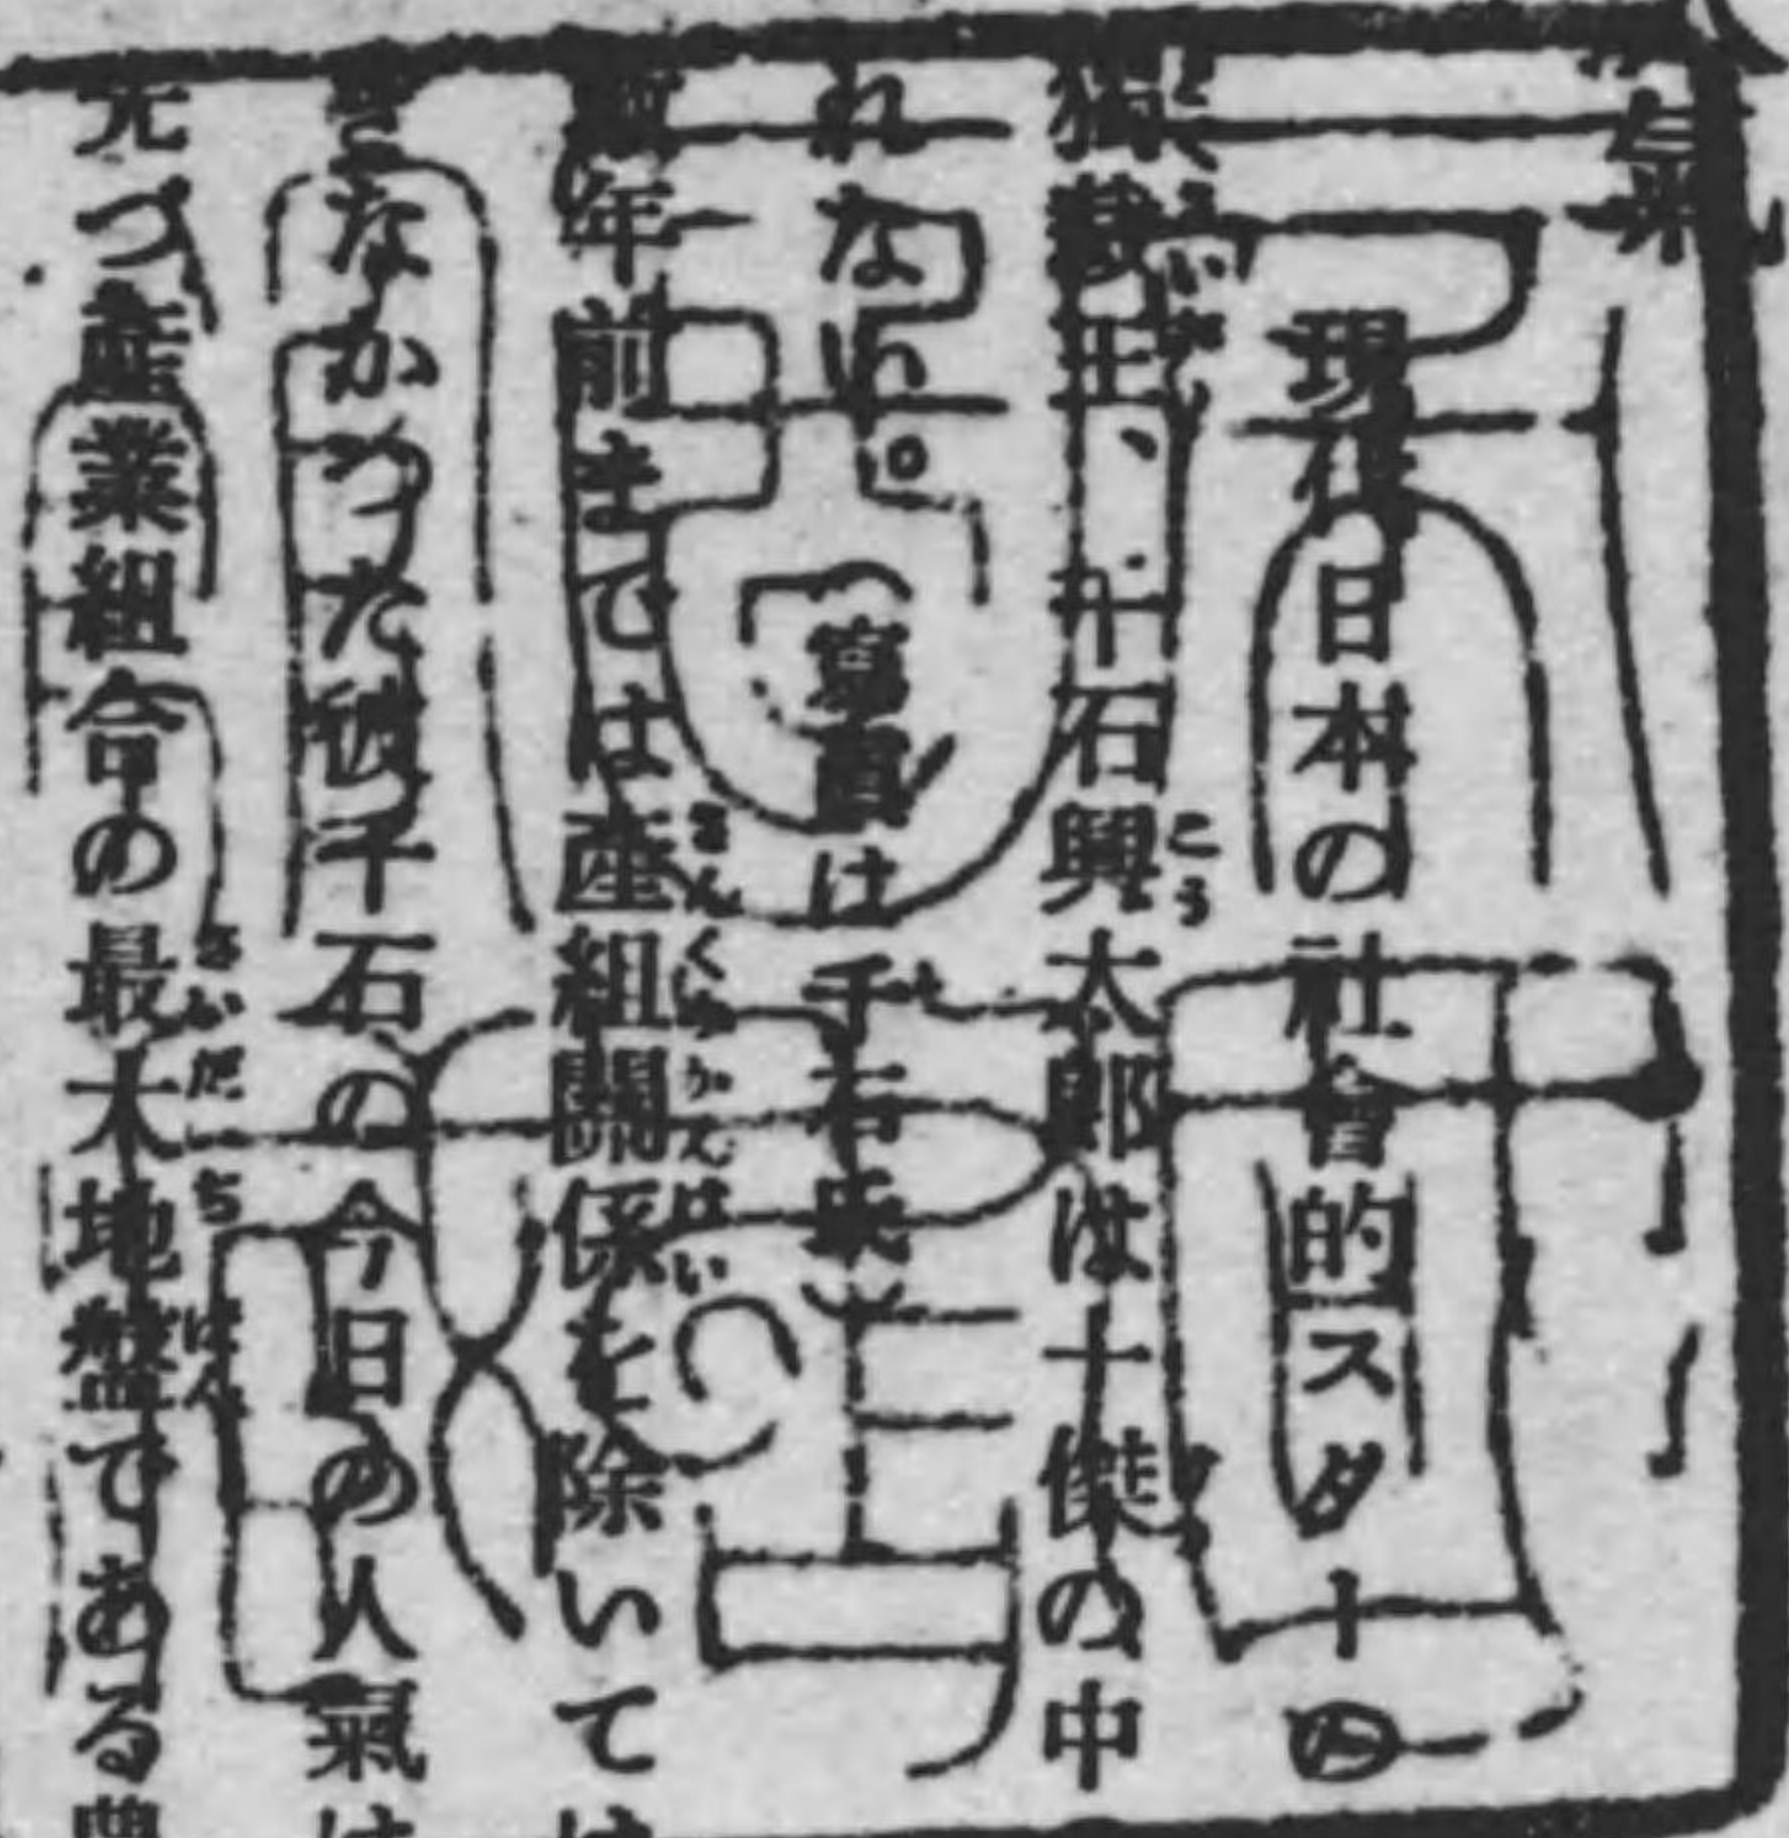 現在日本の社會的スターの
、千石興太郎は十傑の中
れない。
は千石氏
年前までは産組關係を除いては
なかつた彼千石の今日の人氣は
づ産業組合の最大地盤である農